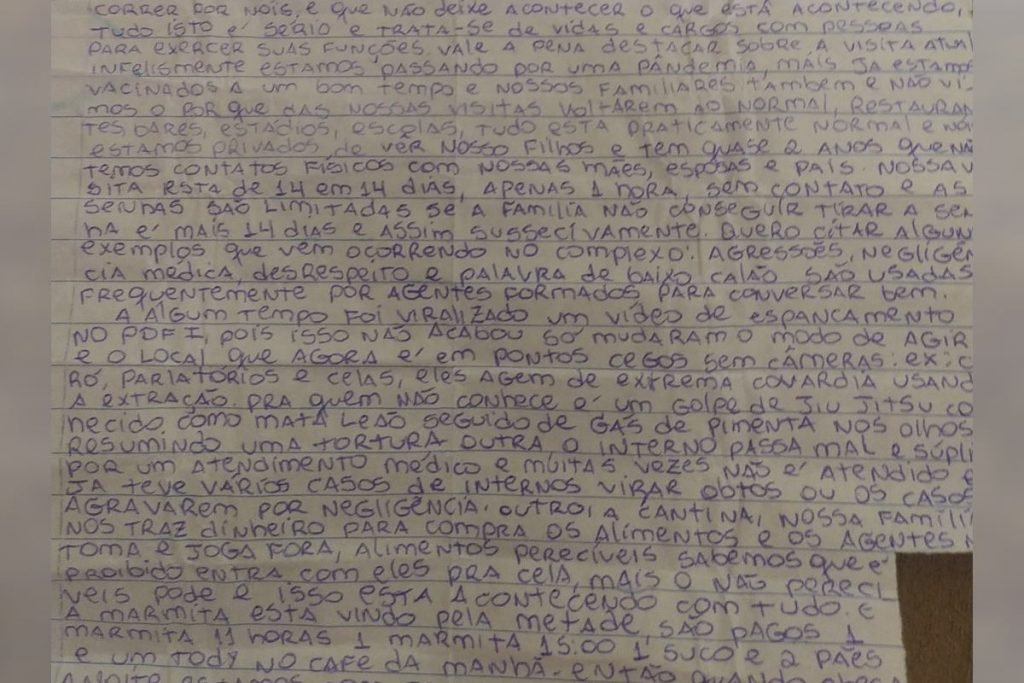 CORRER POR NOIS, E QUE NÃO DEIXE ACONTECER O QUE ESTÁ ACONTECENDO,
TUDO ISTO É SÉRIO E TRATA-SE DE VIDAS E CARGOS COM PESSOAS
PARA EXERCER SUAS FUNÇÕES. VALE A PENA DESTACAR SOBRE A VISITA ATUAL
INFELISMENTE ESTAMOS PASSANDO POR UMA PÂNDEMIA, MAIS JA ESTAMOS
VACINADOS A UM BOM TEMPO E NOSSOS FAMILIARES TAMBEM E NÃO VI
MOS O POR QUE DAS NOSSAS VISITAS VOLTAREM AO NORMAL, RESTAURAN
TES, BARES, ESTÁDIOS, ESCOLAS, TUDO ESTA PRATICAMENTE NORMAL E NÓS
ESTAMOS PRIVADOS DE VER NOSSO FILHOS E TEM QUASE 2 ANOS QUE NÃO
TEMOS CONTATOS FÍSICOS COM NOSSAS MÃES, ESPOSAS E PAIS. NOSSA VI
SITA ESTA DE 14 EM 14 DIAS, APENAS 1 HORA, SEM CONTATO E AS
SENHAS SÃO LIMITADAS SE A FAMILIA NÃO CONSEGUIR TIRAR A SEN
HA É MAIS 14 DIAS E ASSIM SUSSECIVAMENTE. QUERO CITAR ALGUNS
EXEMPLOS QUE VEM OCORRENDO NO COMPLEXO: AGRESSÕES, NEGLIGÊN
CIA MEDICA, DESRESPEITO E PALAVRA DE BAIXO CALÃO SÃO USADAS
FREQUENTEMENTE POR AGENTES FORMADOS PARA CONVERSAR BEM.
A ALGUM TEMPO FOI VIRALIZADO UM VÍDEO DE ESPANCAMENTO
NO PDF I, POIS ISSO NÃO ACABOU SÓ MUDARAM O MODO DE AGIR
E O LOCAL QUE AGORA É EM PONTOS CEGOS SEM CÂMERAS: EX:
RÓ, PARLATÓRIOS E CELAS, ELES AGEM DE EXTREMA COVARDIA USANDO
A EXTRAÇÃO. PRA QUEM NÃO CONHECE É UM GOLPE DE JIU JITSU CO
NHECIDO COMO MATA LEÃO SEGUIDO DE GAS DE PIMENTA NOS OLHOS
RESUMINDO UMA TORTURA OUTRA O INTERNO PASSA MAL E SUPLI
POR UM ATENDIMENTO MÉDICO E MUITAS VEZES NÃO É ATENDIDO E
JA TEVE VÁRIOS CASOS DE INTERNOS VIRAR OBTOS OU OS CASOS
AGRAVAREM POR NEGLIGÊNCIA. OUTRO, A CANTINA, NOSSA FAMILIA
NOS TRAZ DINHEIRO PARA COMPRA OS ALIMENTOS E OS AGENTES N
TOMA E JOGA FORA, ALIMENTOS PERECÍVEIS SABEMOS QUE É
PROIBIDO ENTRA COM ELES PRA CELA, MAIS O NÃO PERECI
VEIS PODE E ISSO ESTA ACONTECENDO COM TUDO. E
A MARMITA ESTA VINDO PELA METADE, SÃO PAGOS 1
MARMITA 11 HORAS 1 MARMITA 15:00 1 SUCO E 2 PÃES
E UM TODY NO CAFE DA MANHÃ. ENTÃO QUANDO